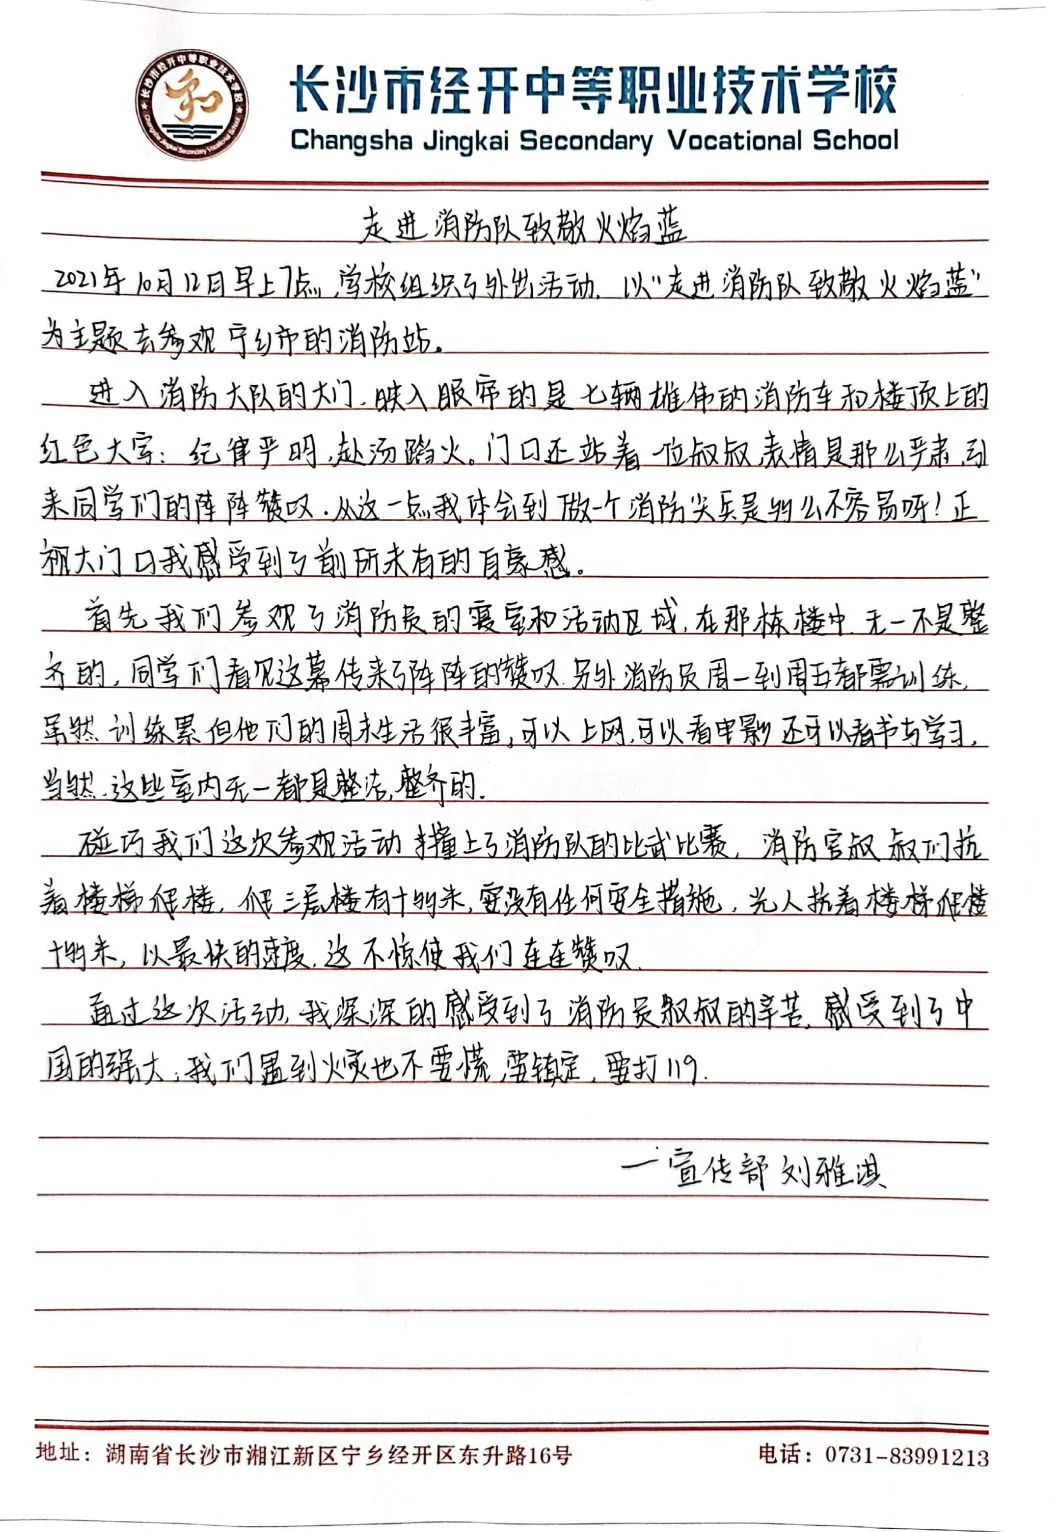 长沙市经开中等职业技术学校
Changsha Jingkai Secondary Vocational School
走进消防队致敬火焰蓝
2021年10月12日早上7点,学校组织了外出活动,以“走进消防队致敬火焰蓝”
为主题去参观宁乡市的消防站。
进入消防大队的大门,映入眼帘的是七辆雄伟的消防车和楼顶上的
红色大字:纪律严明,赴汤蹈火。门口还站着一位叔叔,表情是那么严肃,引
来同学们的阵阵赞叹.从这一点我体会到做一个消防尖兵是多么不容易呀!正
视大门口我感受到了前所未有的自豪感。
首先我们参观了消防员的寝室和活动区域,在那栋楼中无一不是整
齐的,同学们看见这幕传来了阵阵的赞叹.另外消防员周一到周五都需训练,
虽然训练累但他们的周末生活很丰富,可以上网,可以看电影还可以看书与学习,
当然,这些室内无一都是整洁,整齐的.
碰巧我们这次参观活动撞上了消防队的比武比赛,消防官叔叔们扛
着楼梯爬楼,爬三层楼有十多米,要没有任何安全措施,光人扛着楼梯爬楼
十多米,以最快的速度,这不惊使我们连连赞叹.
通过这次活动,我深深的感受到了消防员叔叔的辛苦,感受到了中
国的强大;我们遇到火灾也不要慌,要镇定,要打119.
一宣传部刘雅淇
地址:湖南省长沙市湘江新区宁乡经开区东升路16号
电话:0731-83991213